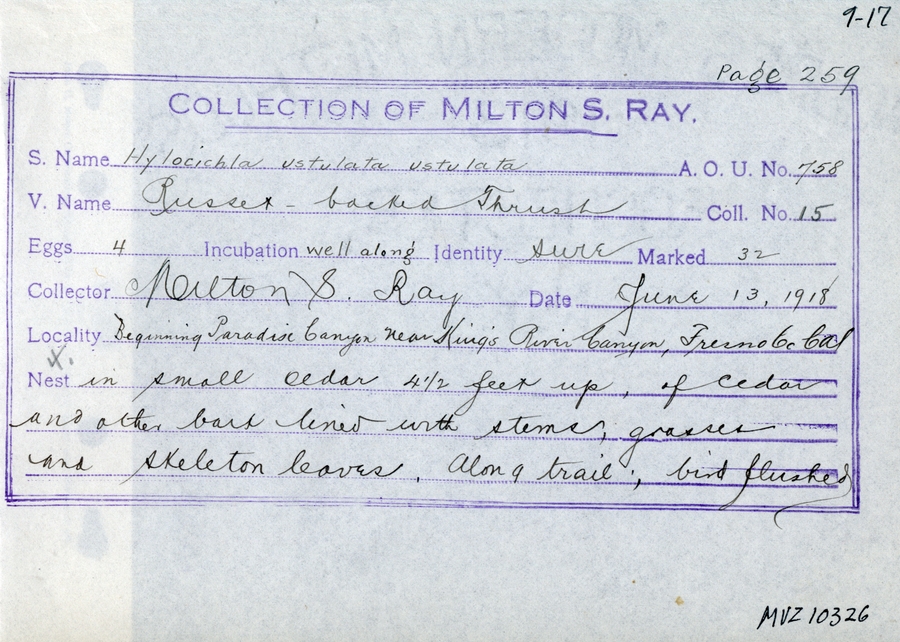 9-17
Page 259
COLLECTION OF MILTON S. RAY.
S. Name Hylocichla ustulata ustulata A. O. U. No. 758
V. Name Russet-backed Thrush Coll. No. 15
Eggs 4 Incubation well along Identity sure Marked 32
Collector Milton S. Ray Date June 13, 1918
Locality Beginning Paradise Canyon near King's River Canyon, Fresno Co Cal
X.
Nest in small cedar 4 1/2 feet up, of cedar
and other bark lined with stems, grasses
and skeleton leaves. Along trail; bird flushed
MVZ 10326